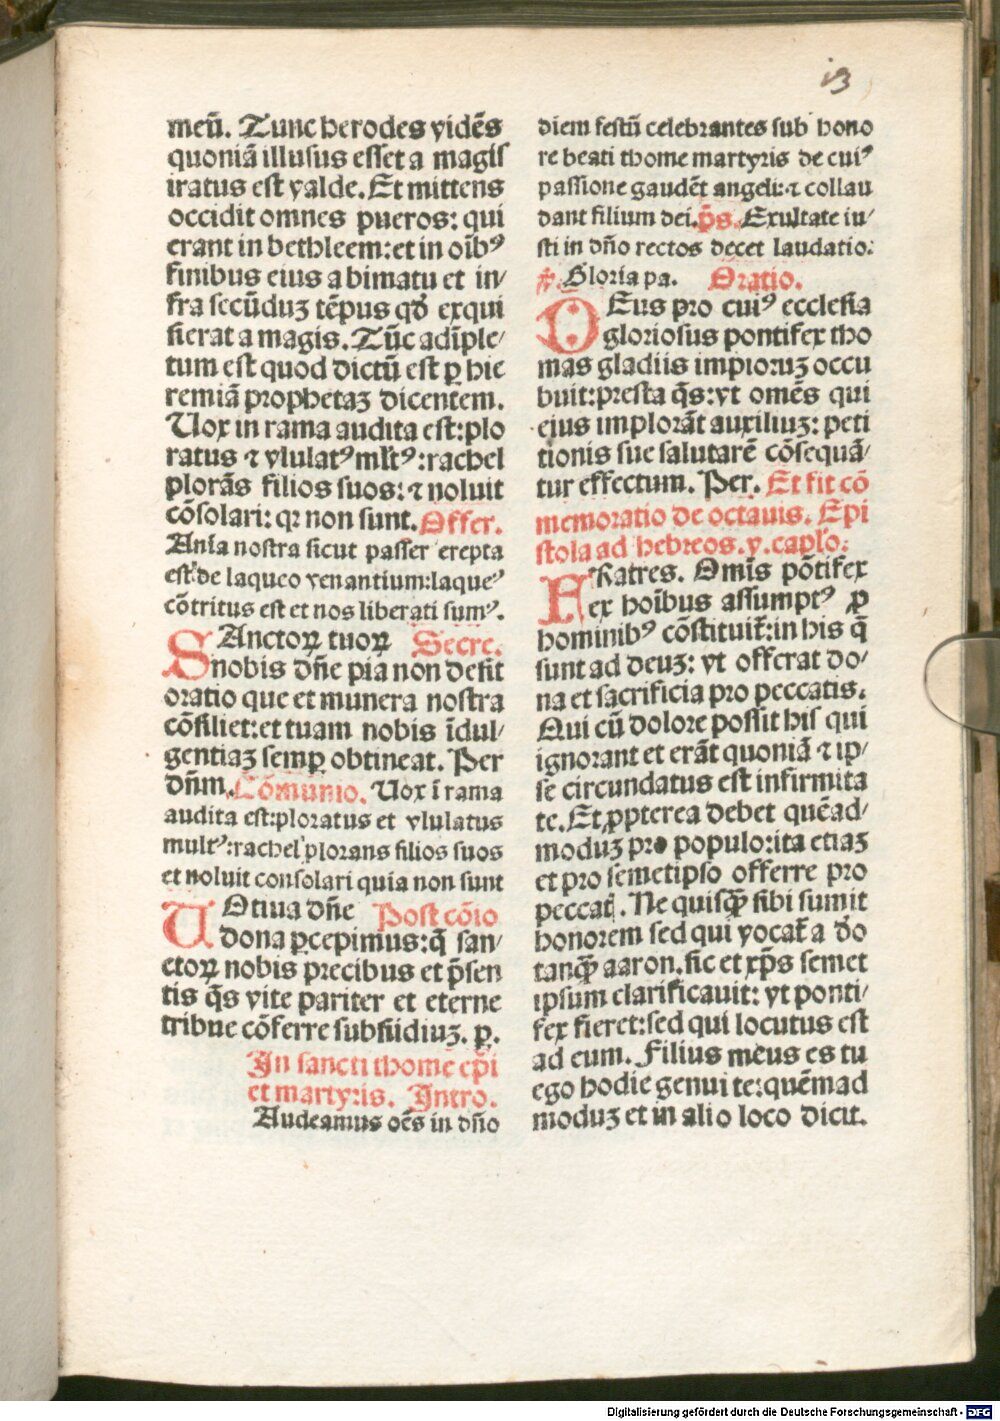 13
meū. Tunc herodes vidēs
quoniā illusus esset a magis
iratus est valde. Et mittens
occidit omnes pueros: qui
erant in bethleem: et in oīb⁹
finibus eius a bimatu et in/
fra secūduꝫ tēpus qđ exqui
sierat a magis. Tūc adīple/
tum est quod dictū est ꝑ hie
remiā prophetaꝫ dicentem.
Uox in rama audita est: plo
ratus ⁊ vlulat⁹ mlt⁹: rachel
plorās filios suos: ⁊ noluit
cōsolari: qꝛ non sunt. Offer.
Anīa nostra sicut passer erepta
est de laqueo venantium: laque⁹
cōtritus est et nos liberati sum⁹.
SAnctoꝝ tuoꝝ Secre.
nobis dn̄e pia non desit
oratio que et munera nostra
cōsiliet: et tuam nobis īdul/
gentiaꝫ semꝑ obtineat. Per
dn̄m. Cōmunio. Uox ī rama
audita est: ploratus et vlulatus
mult⁹: rachel plorans filios suos
et noluit consolari quia non sunt
UOtiua dn̄e Post cōio
dona ꝑcepimus: q̄ san/
ctoꝝ nobis precibus et p̄sen
tis q̄s vite pariter et eterne
tribue cōferre subsidiuꝫ. ꝑ.
In sancti thome ep̄i
et martyris. Intro.
Audeamus oēs in dn̄o
diem festū celebrantes sub hono
re beati thome martyris de cui⁹
passione gaudēt angeli: ⁊ collau
dant filium dei. p̄s. Exultate iu/
sti in dn̄o rectos decet laudatio.
℣. Gloria pa. Oratio.
DEus pro cui⁹ ecclesia
gloriosus pontifex tho
mas gladiis impioruꝫ occu
buit: presta q̄s: vt omēs qui
eius implorāt auxiliuꝫ: peti
tionis sue salutarē cōsequā/
tur effectum. Per. Et fit cō
memoratio de octauis. Epi
stola ad hebreos. v. caplo.
FRatres. Omīs pōtifex
ex hoībus assumpt⁹ ꝓ
hominib⁹ cōstituit̄: in his q̄
sunt ad deuꝫ: vt offerat do/
na et sacrificia pro peccatis.
Qui cū dolore possit his qui
ignorant et erāt quoniā ⁊ ip/
se circundatus est infirmita
te. Et ꝓpterea debet quēad/
moduꝫ pro populo: ita etiaꝫ
et pro semetipso offerre pro
peccatꝭ. Ne quisꝙ̄ sibi sumit
honorem sed qui vocat̄ a deo
tanꝙ̄ aaron. sic et xp̄s semet
ipsum clarificauit: vt ponti/
fex fieret: sed qui locutus est
ad eum. Filius meus es tu
ego hodie genui te: quēmad
moduꝫ et in alio loco dicit.
Digitalisierung gefördert durch die Deutsche Forschungsgemeinschaft - DFG